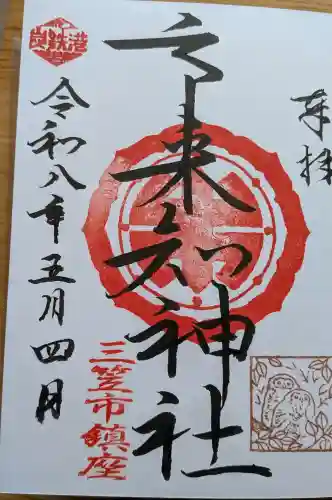 奉拝
市来知神社
三笠市鎮座
令和八年五月四日
炭鉄港